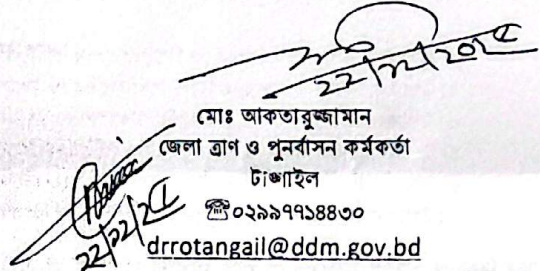 ২২/১২/২০২৫
মোঃ আকতারুজ্জামান
জেলা ত্রাণ ও পুনর্বাসন কর্মকর্তা
টাঙ্গাইল
☎০২৯৯৭৭১৪৪৩০
drrotangail@ddm.gov.bd